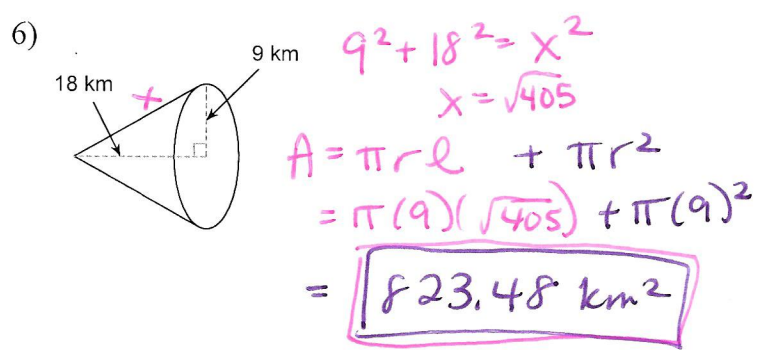 6)
9 km
18 km
x
9² + 18² = x²
x = √405
A = πrl + πr²
= π(9)(√405) + π(9)²
= 823.48 km²